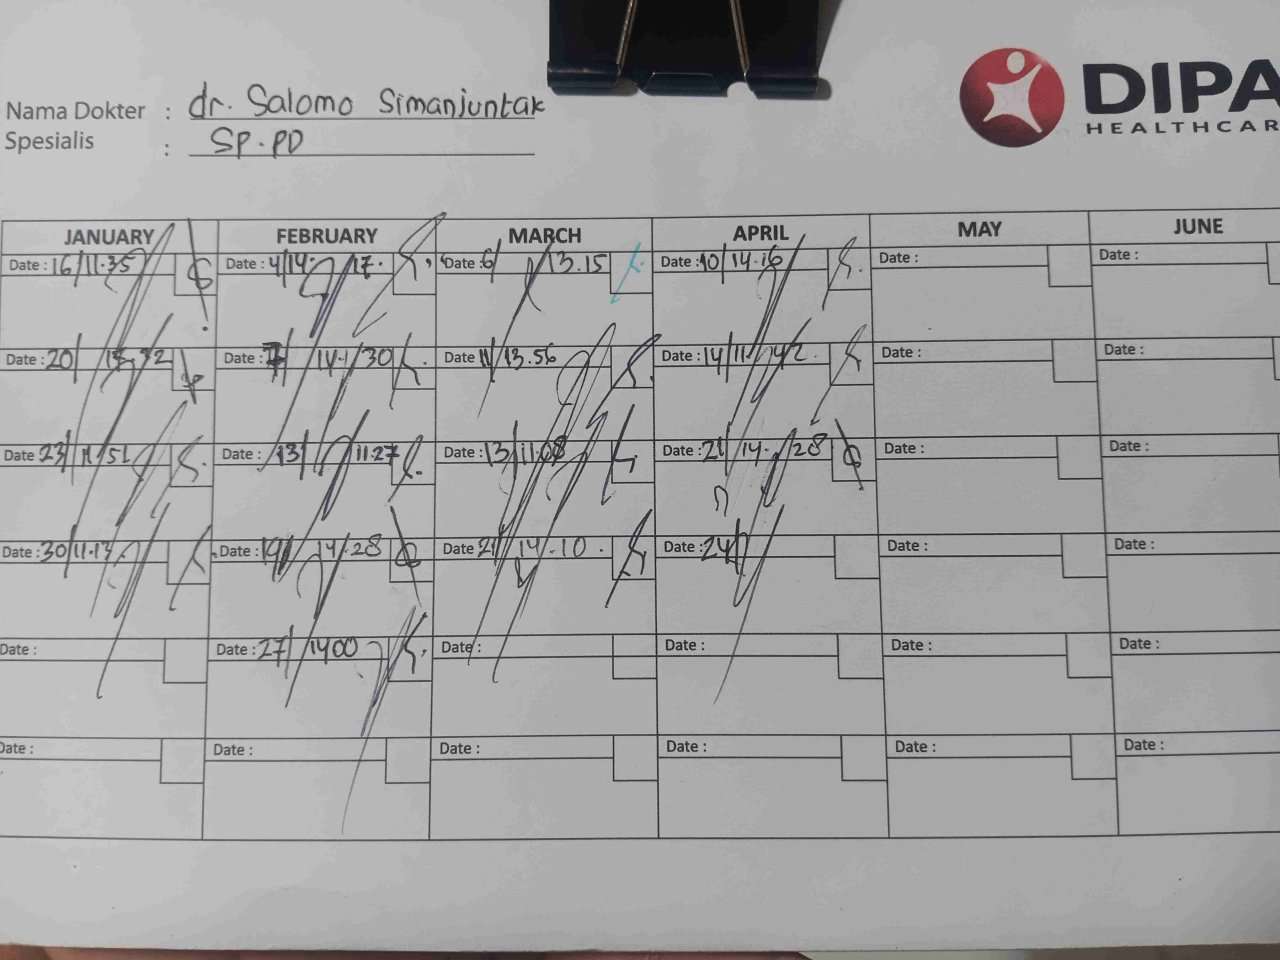 DIPA
HEALTHCAR
Nama Dokter : dr. Salomo Simanjuntak
Spesialis : SP.PD
JANUARY FEBRUARY MARCH APRIL MAY JUNE
Date : 16/11.35 Date : 4/14. 17. Date : 6/ 13.15 Date : 10/14.16 Date : Date :
Date : 20/ Date : 7/ 14./30 Date 11/13.56 Date : 14/11.42. Date : Date :
Date 23/11/51 Date : 13/ 11.27 Date : 13/11.08 Date : 21/14./28 Date : Date :
Date : 30/11.13 Date : 19/ 14.28 Date 21/14.10. Date : 24/ Date : Date :
Date : Date : 27/1400 Date : Date : Date : Date :
Date : Date : Date : Date : Date : Date :